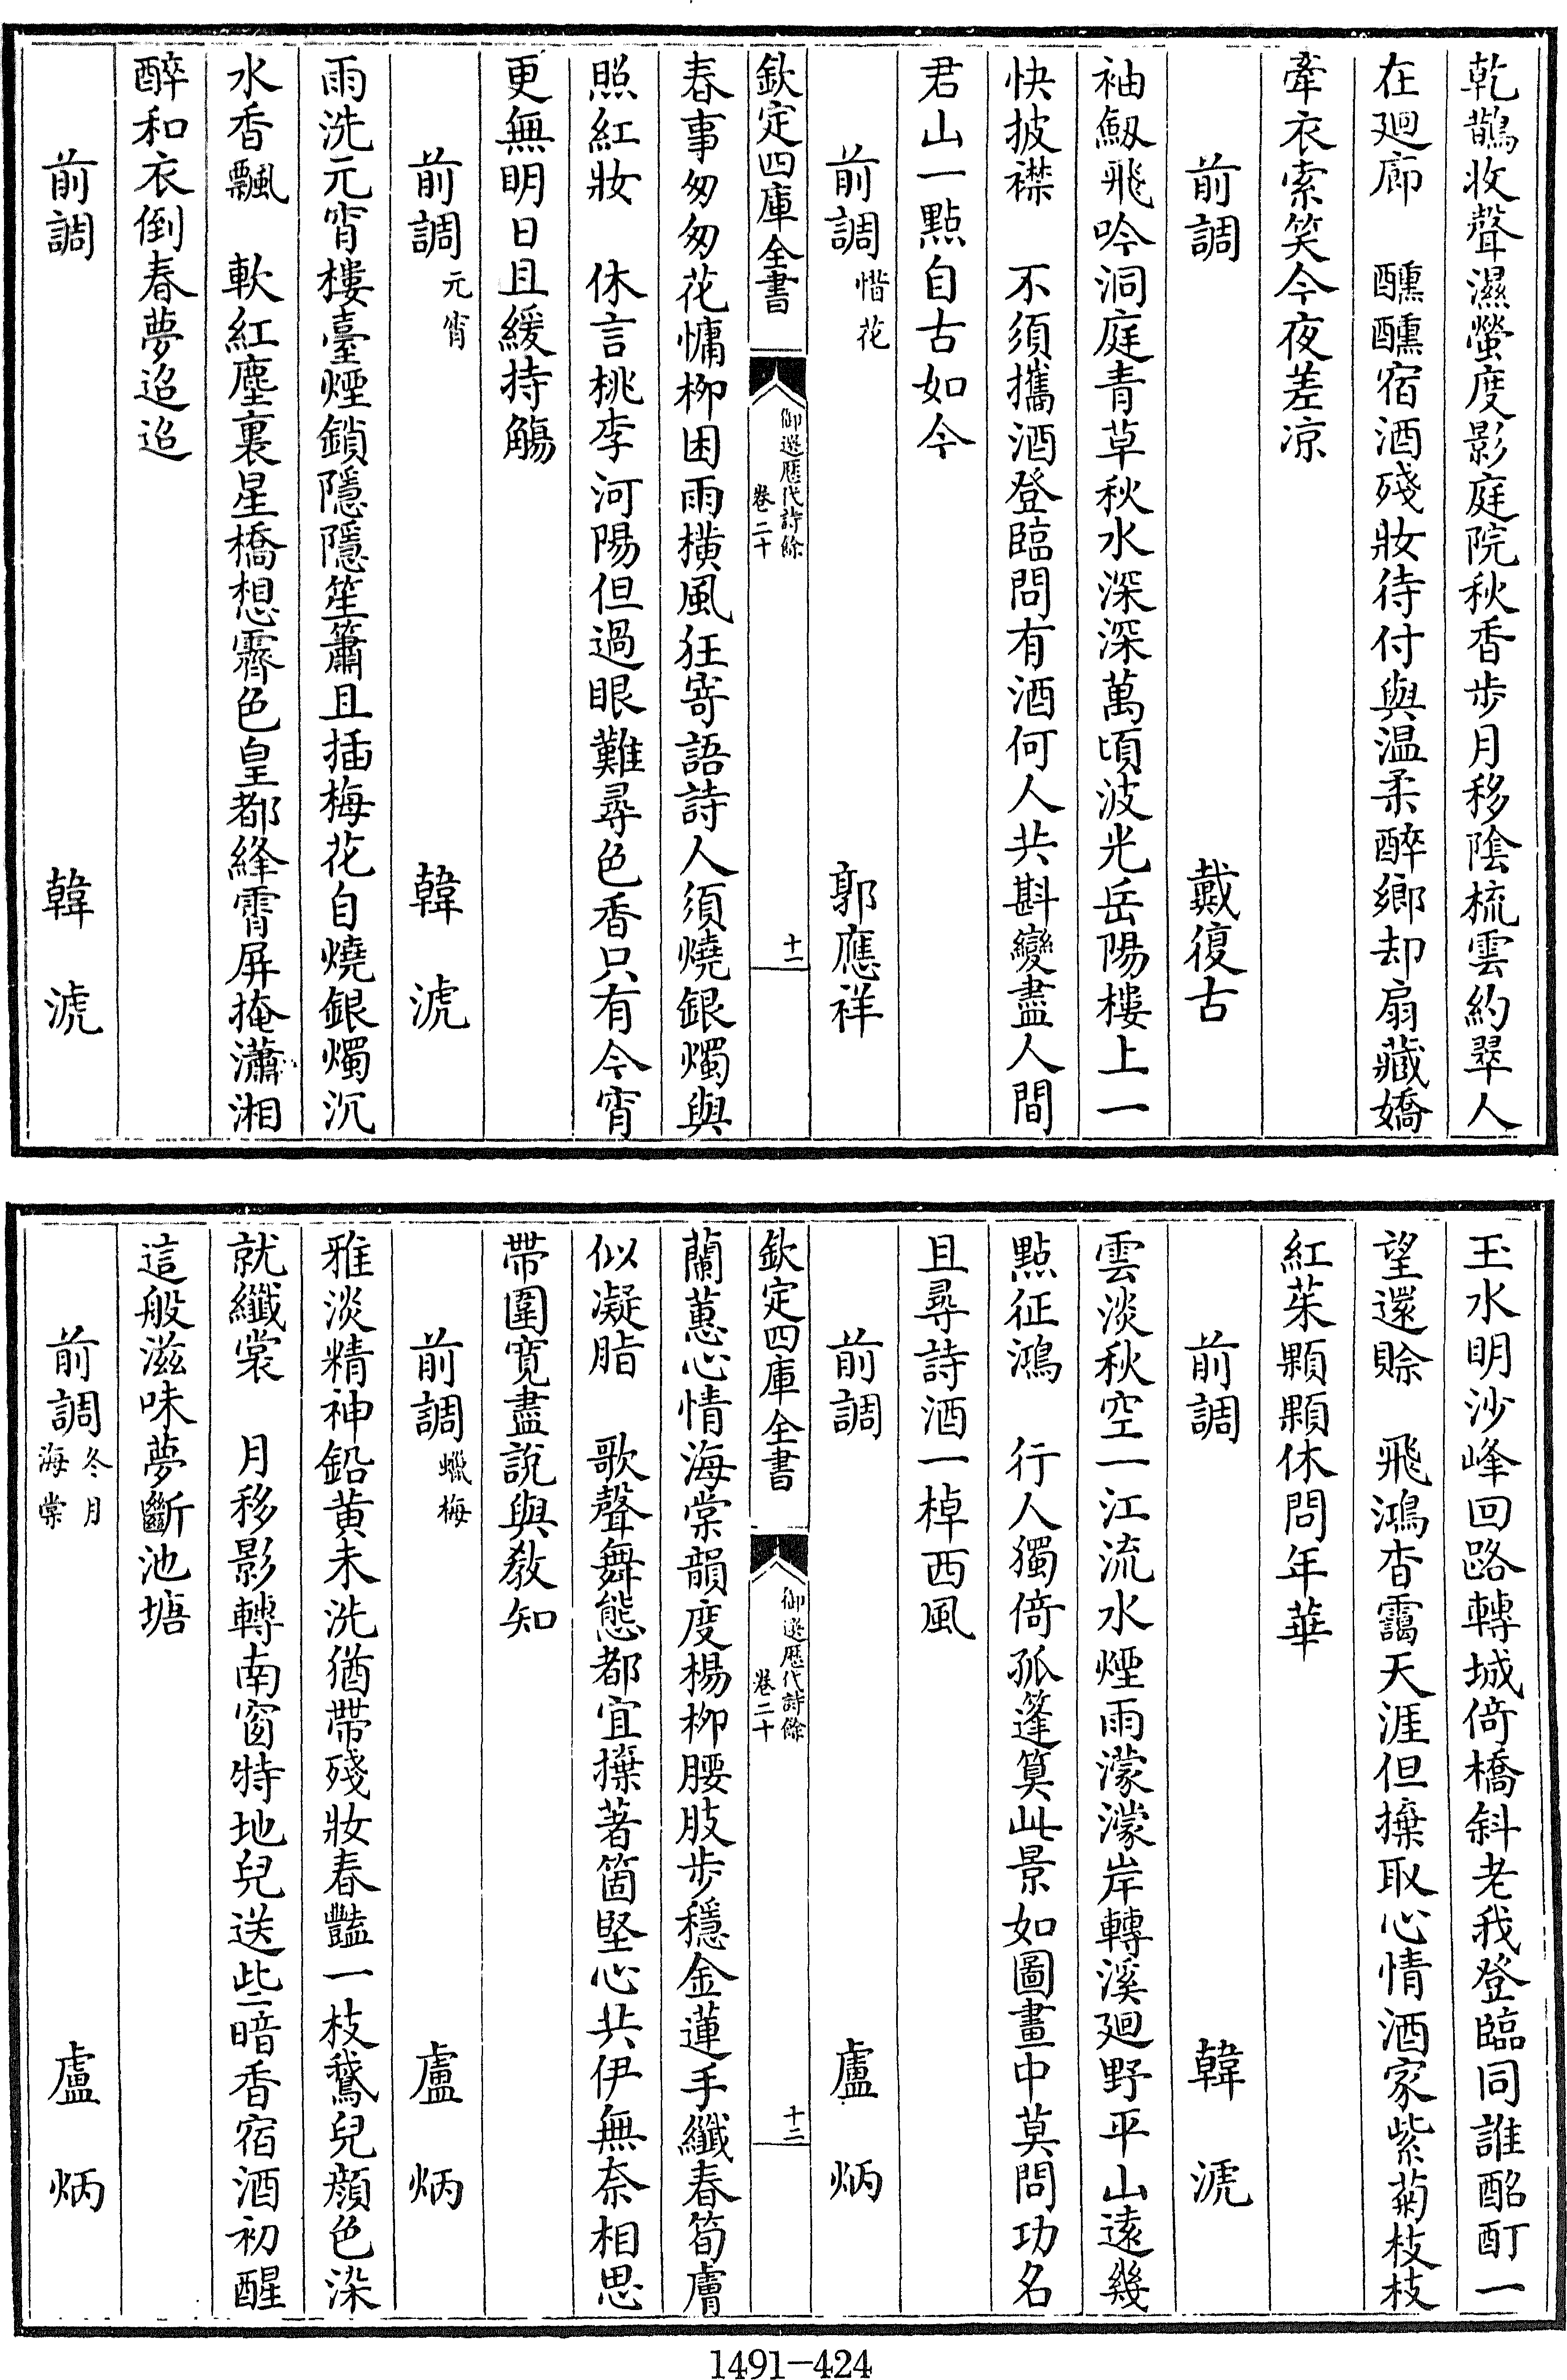 乾鵲收聲濕螢度影庭院秋香步月移陰梳雲約翠人
在廻廊　醺醺宿酒殘妝待付與温柔醉鄉却扇藏嬌
牽衣索笑今夜差凉
前調　戴復古
袖劔飛吟洞庭青草秋水深深萬頃波光岳陽樓上一
快披襟　不須攜酒登臨問有酒何人共斟變盡人間
君山一點自古如今
前調惜花　郭應祥
欽定四庫全書　御選歴代詩餘卷二十　十一
春事匆匆花慵栁困雨横風狂寄語詩人須燒銀燭與
照紅妝　休言桃李河陽但過眼難尋色香只有今宵
更無明日且緩持觴
前調元宵　韓淲
雨洗元宵樓臺煙鎖隱隱笙簫且插梅花自燒銀燭沉
水香飄　軟紅塵裏星橋想霽色皇都絳霄屏掩瀟湘
醉和衣倒春夢迢迢
前調　韓淲
玉水明沙峰回路轉城倚橋斜老我登臨同誰酩酊一
望還賒　飛鴻杳靄天涯但擽取心情酒家紫菊枝枝
紅茱顆顆休問年華
前調　韓淲
雲淡秋空一江流水煙雨濛濛岸轉溪廻野平山遠幾
點征鴻　行人獨倚孤篷算此景如圖畫中莫問功名
且尋詩酒一棹西風
前調　盧炳
欽定四庫全書　御選歴代詩餘卷二十　十二
蘭蕙心情海棠韻度楊栁腰肢步穩金蓮手纖春筍膚
似凝脂　歌聲舞態都宜擽著箇堅心共伊無奈相思
帶圍寛盡說與敎知
前調蠟梅　盧炳
雅淡精神鉛黄未洗猶帶殘妝春豔一枝鵞兒顔色染
就纖裳　月移影轉南窗特地兒送些暗香宿酒初醒
這般滋味夢斷池塘
前調冬月海棠　盧炳
1491—424